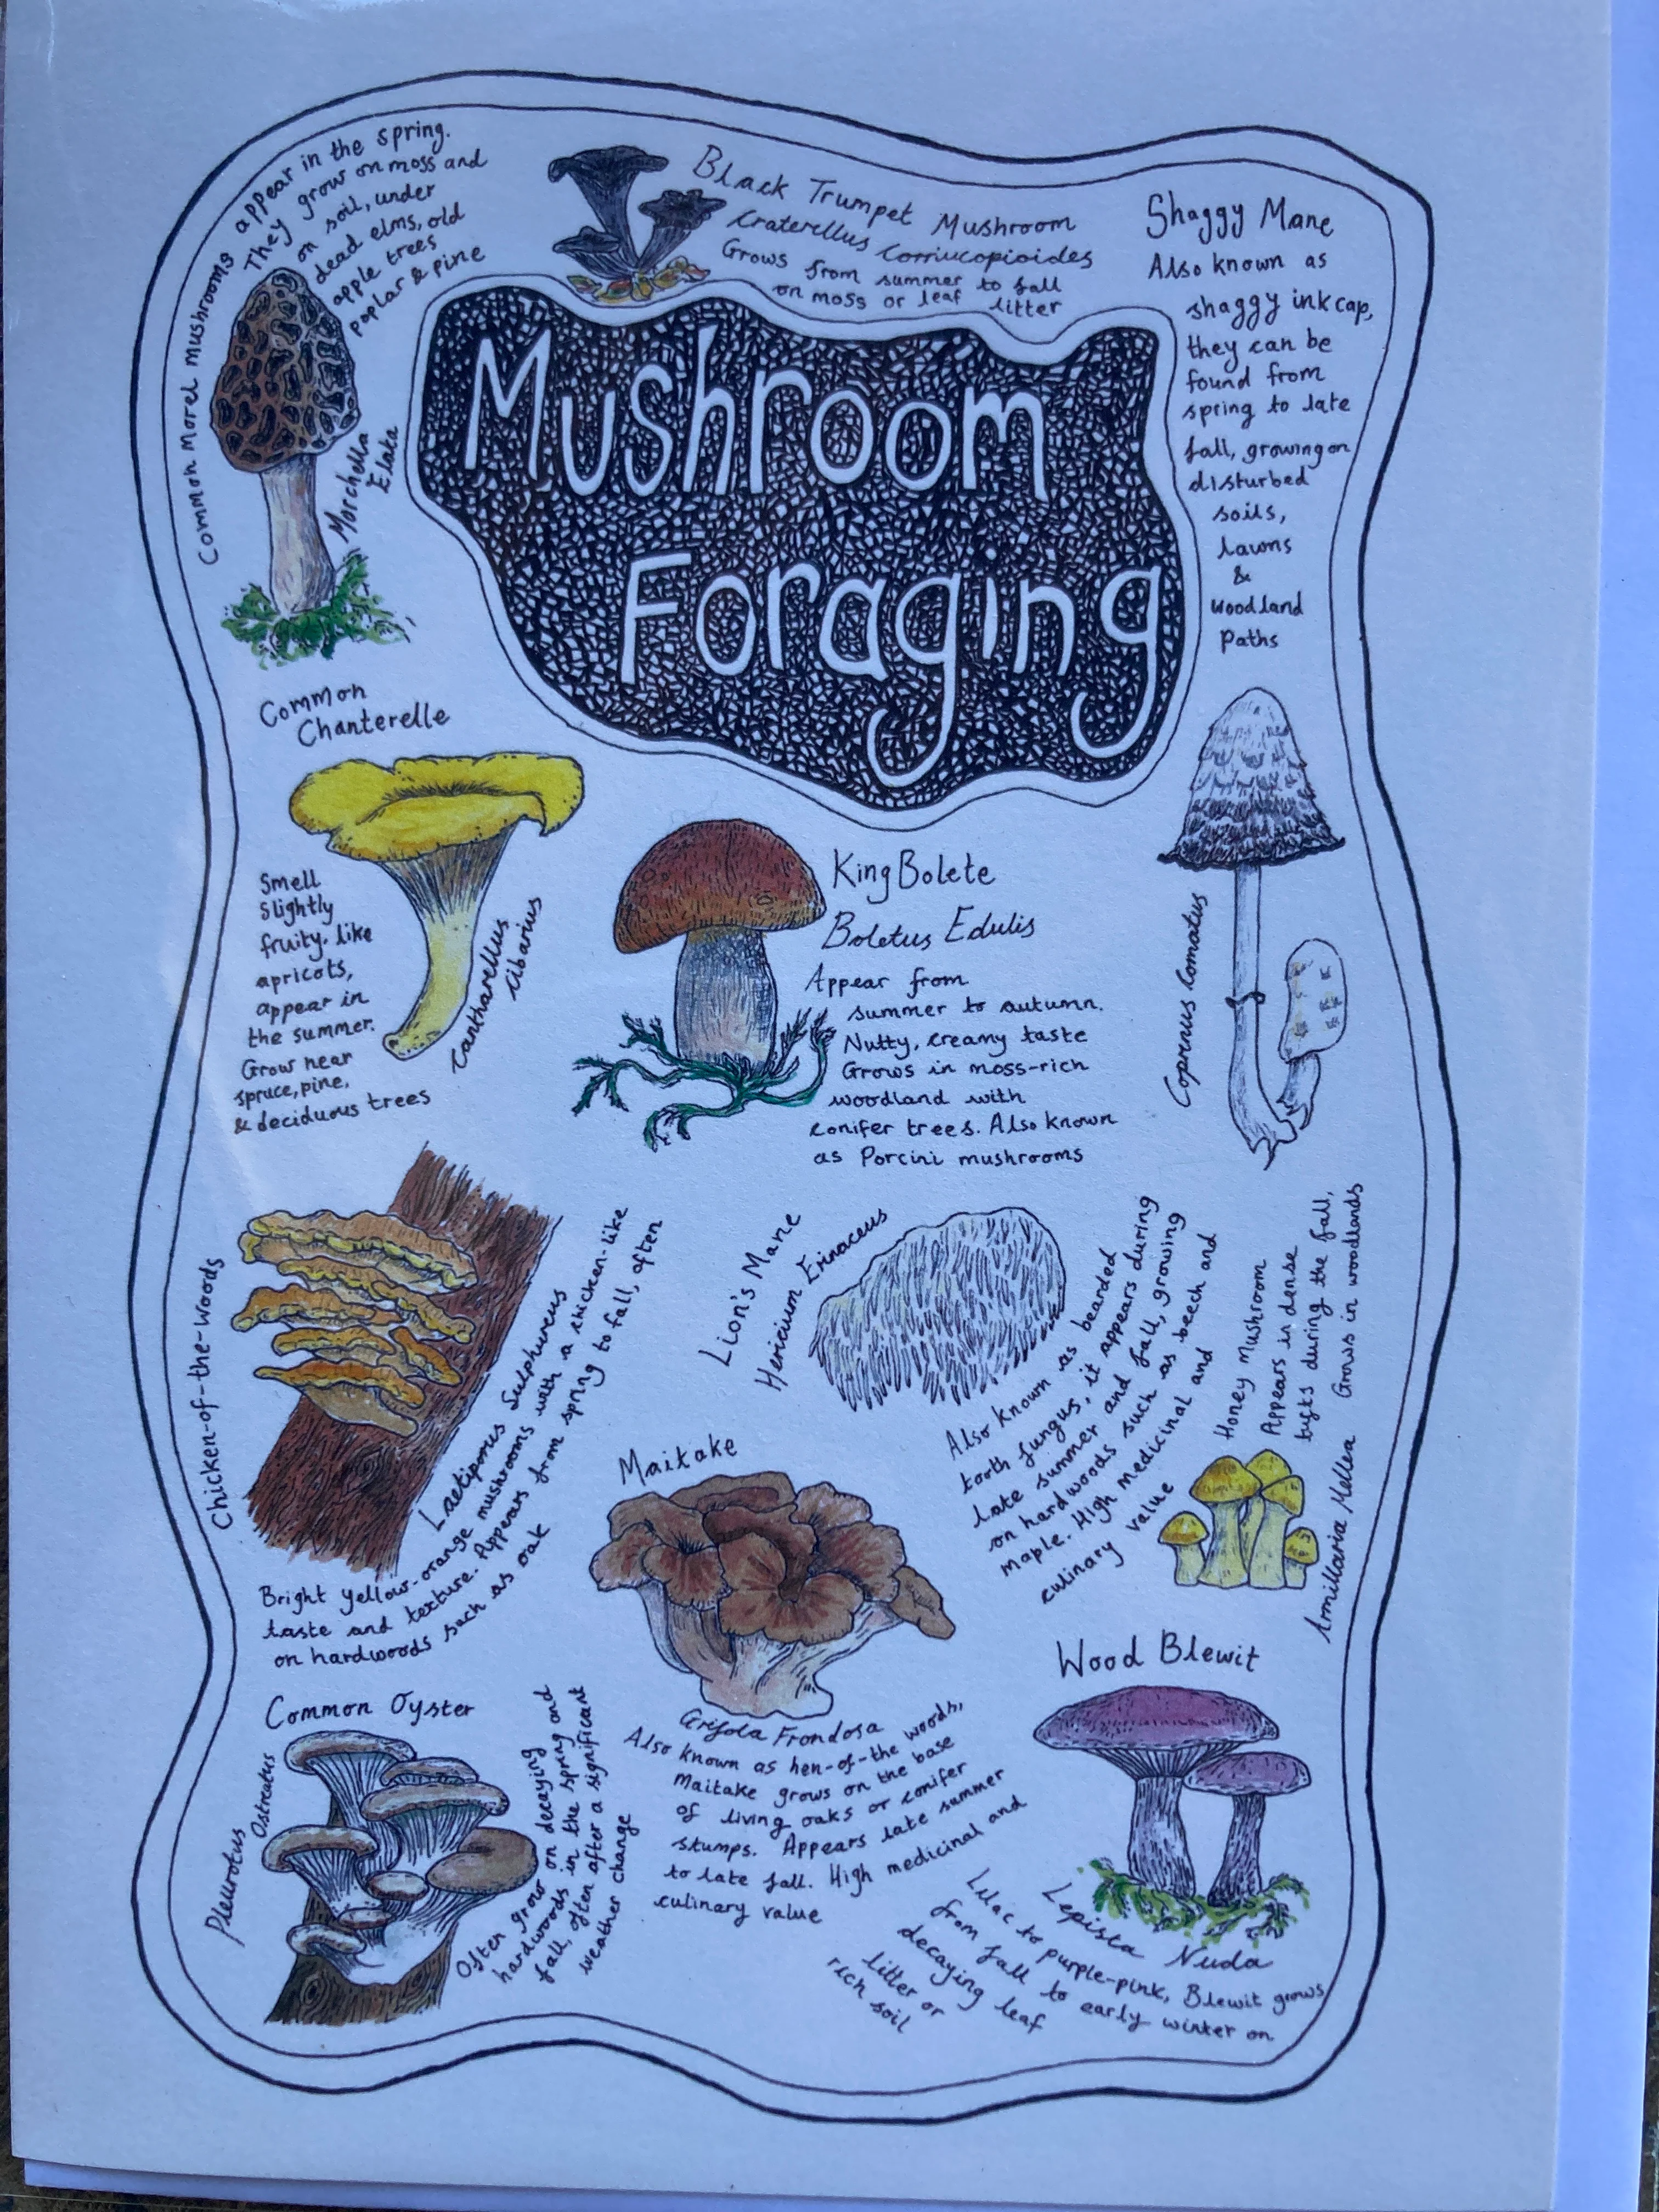 Common Morel mushrooms appear in the spring.
They grow on moss and
on soil, under
dead elms, old
apple trees
poplar & pine
Morchella
Elata
Black Trumpet Mushroom
Craterellus Cornucopioides
Grows from summer to fall
on moss or leaf litter
Shaggy Mane
Also known as
shaggy ink cap,
they can be
found from
spring to late
fall, growing on
disturbed
soils,
lawns
&
woodland
Paths
Coprinus Comatus
Mushroom
Foraging
Common
Chanterelle
Smell
slightly
fruity, like
apricots,
appear in
the summer.
Grow near
spruce, pine,
& deciduous trees
Cantharellus
Cibarius
King Bolete
Boletus Edulis
Appear from
summer to autumn.
Nutty, creamy taste
Grows in moss-rich
woodland with
conifer trees. Also known
as Porcini mushrooms
Chicken-of-the-Woods
Laetiporus Sulphureus
Bright yellow-orange mushrooms with a chicken-like
taste and texture. Appears from spring to fall, often
on hardwoods such as oak
Lion's Mane
Hericium Erinaceus
Also known as bearded
tooth fungus, it appears during
late summer and fall, growing
on hardwoods such as beech and
maple. High medicinal and
culinary value
Honey Mushroom
Appears in dense
tufts during the fall,
Grows in woodlands
Armillaria Mellea
Maitake
Grifola Frondosa
Also known as hen-of-the woods,
Maitake grows on the base
of living oaks or conifer
stumps. Appears late summer
to late fall. High medicinal and
culinary value
Common Oyster
Pleurotus
Ostreatus
Often grow on decaying
hardwoods in the spring and
fall, often after a significant
weather change
Wood Blewit
Lepista Nuda
Lilac to purple-pink, Blewit grows
from fall to early winter on
decaying leaf
litter or
rich soil